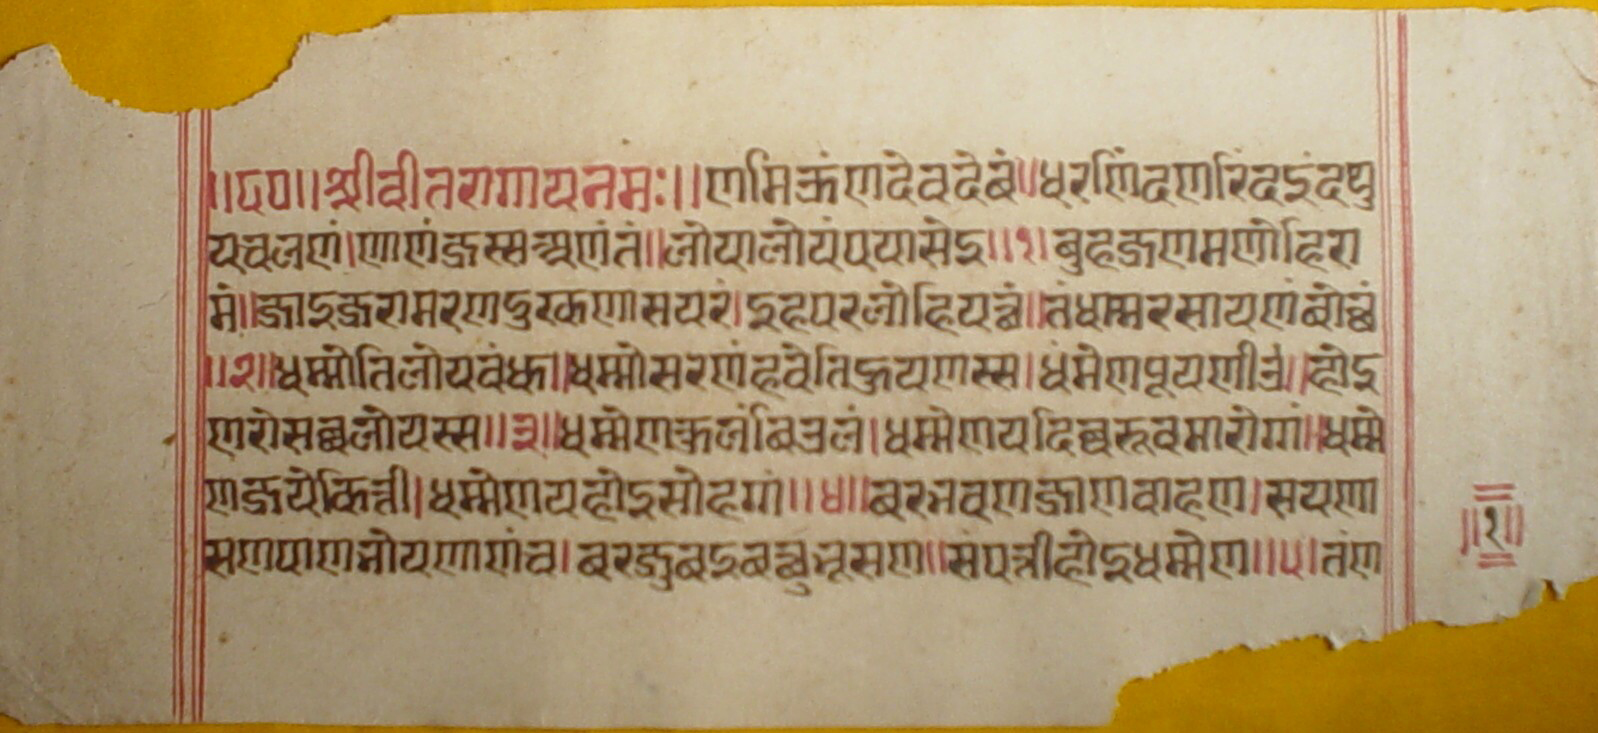 ॥ए५०॥श्रीवीतरागायनमः॥णमिऊंणदेवदेवं॥धरणिंदणरिंदइंदथु
यचलणं।णाणंजस्सअणंतं॥लोयालोयंपयासेइ॥१॥बुहजणमणोहिरा
मं॥जाइजरामरणदुरकणासयरं।इहपरलोहियत्रं॥तंधम्मरसायणंवोछं
॥२॥धम्मोतिलोयवंधू॥धम्मोसरणंहवेतिजयणस्स।धंमेणपूयणीउ॥होइ
णरोसव्वलोयस्स॥३॥धम्मेणकुलंविउलं।धम्मेणयदिव्वरूवमारोगां॥धम्मे
णजयेकित्ती।धम्मेणयहोइसोहगां॥४॥वरभवणजाणवाहण।सयणा
सणपाणभोयणाणंच।वरजुवइवत्थुभूसण॥संपत्तीहोइधम्मेण॥५।तंण
॥१॥